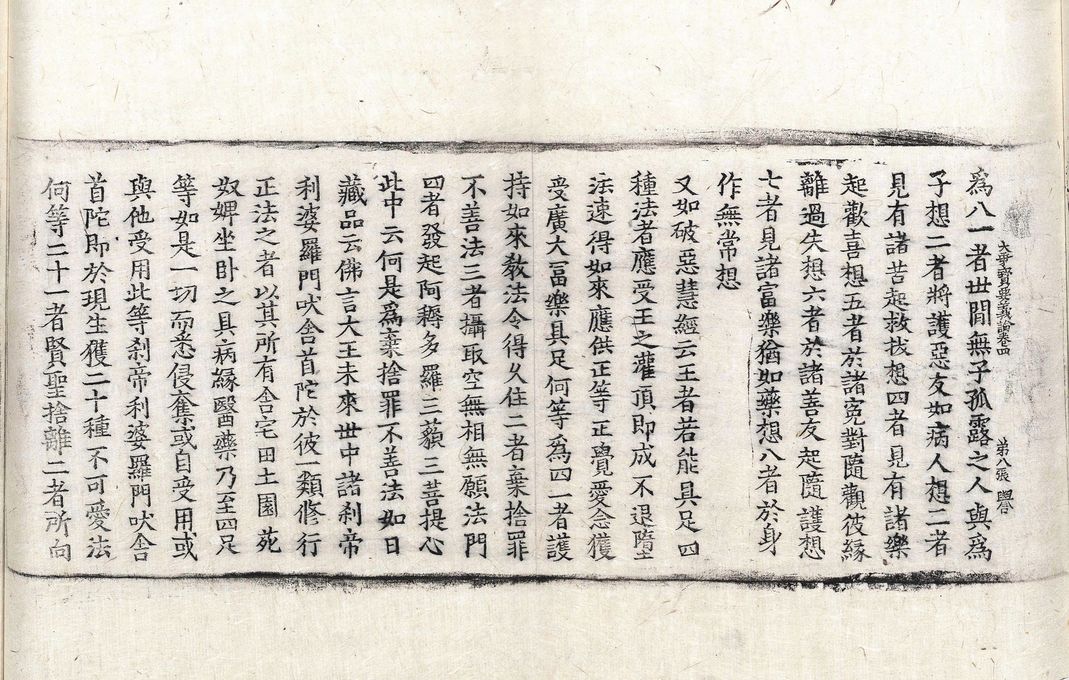 大乘寶要義論卷四　第八張　譽
爲八一者世間無子孤露之人與爲
子想二者將護惡友如病人想二者
見有諸苦起救拔想四者見有諸樂
起歡喜想五者於諸寃對隨觀彼緣
離過失想六者於諸善友起隨護想
七者見諸富樂猶如藥想八者於身
作無常想
又如破惡慧經云王者若能具足四
種法者應受王之灌頂即成不退墮
法速得如來應供正等正覺愛念獲
受廣大富樂具足何等爲四一者護
持如來敎法令得久住二者棄捨罪
不善法三者攝取空無相無願法門
四者發起阿耨多羅三藐三菩提心
此中云何是爲棄捨罪不善法如日
藏品云佛言大王未來世中諸刹帝
利婆羅門吠舍首陀於彼一類修行
正法之者以其所有舍宅田土園苑
奴婢坐卧之具病緣醫藥乃至四足
等如是一切而悉侵奪或自受用或
與他受用此等刹帝利婆羅門吠舍
首陀即於現生獲二十種不可愛法
何等二十一者賢聖捨離二者所向